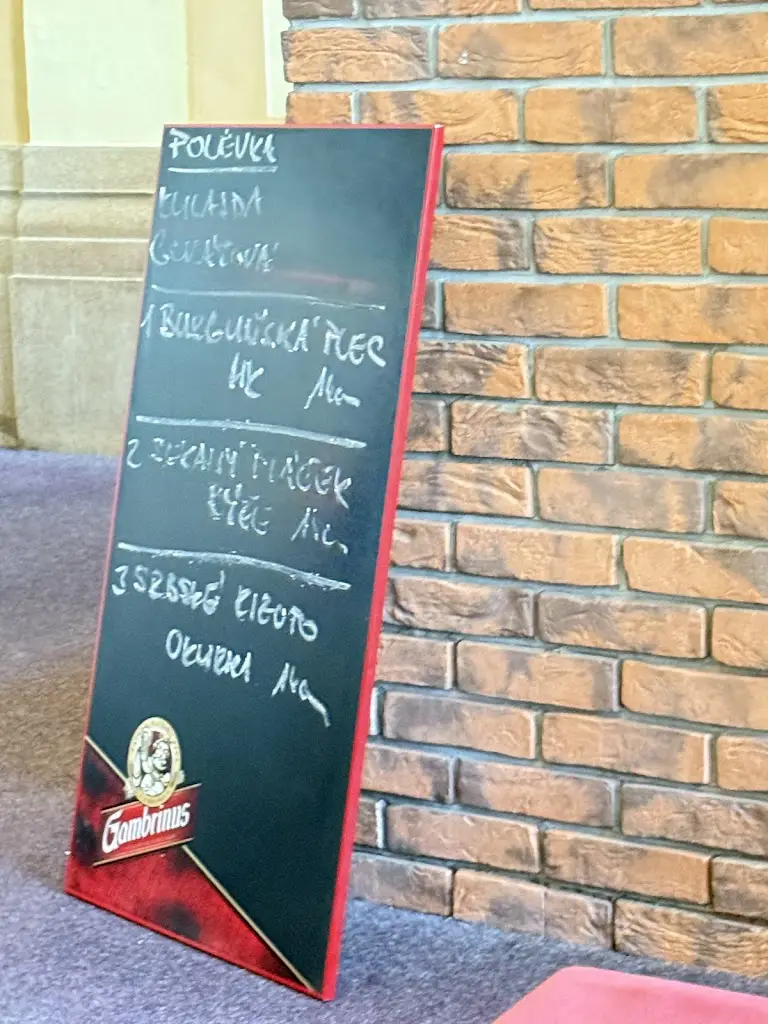 POLÉVKA
KULAJDA
GULÁŠOVÁ
1 BURGUNSKÁ PLEC
HK
2 SEKANÝ PLÁCEK
3 SRBSKÉ RIZOTO
OKURKA
Gambrinus